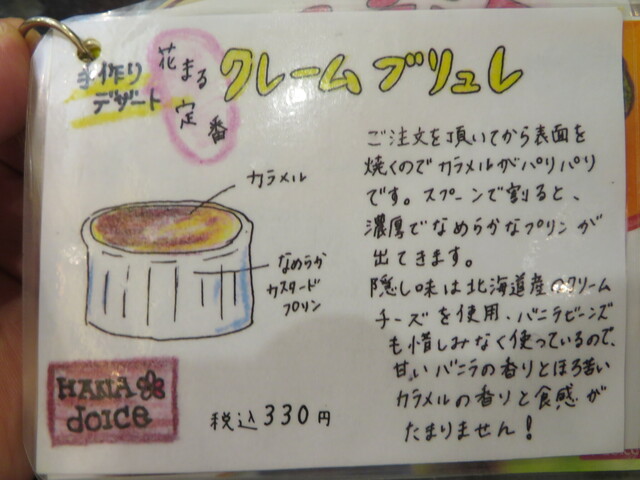 手作り
デザート
花まる
定番
クレームブリュレ
ご注文を頂いてから表面を
焼くのでカラメルがパリパリ
です。スプーンで割ると、
濃厚でなめらかなプリンが
出てきます。
隠し味は北海道産のクリーム
チーズを使用、バニラビーンズ
も惜しみなく使っているので、
甘いバニラの香りとほろ苦い
カラメルの香りと食感が
たまりません!
カラメル
なめらか
カスタード
プリン
HANA
dolce
税込330円